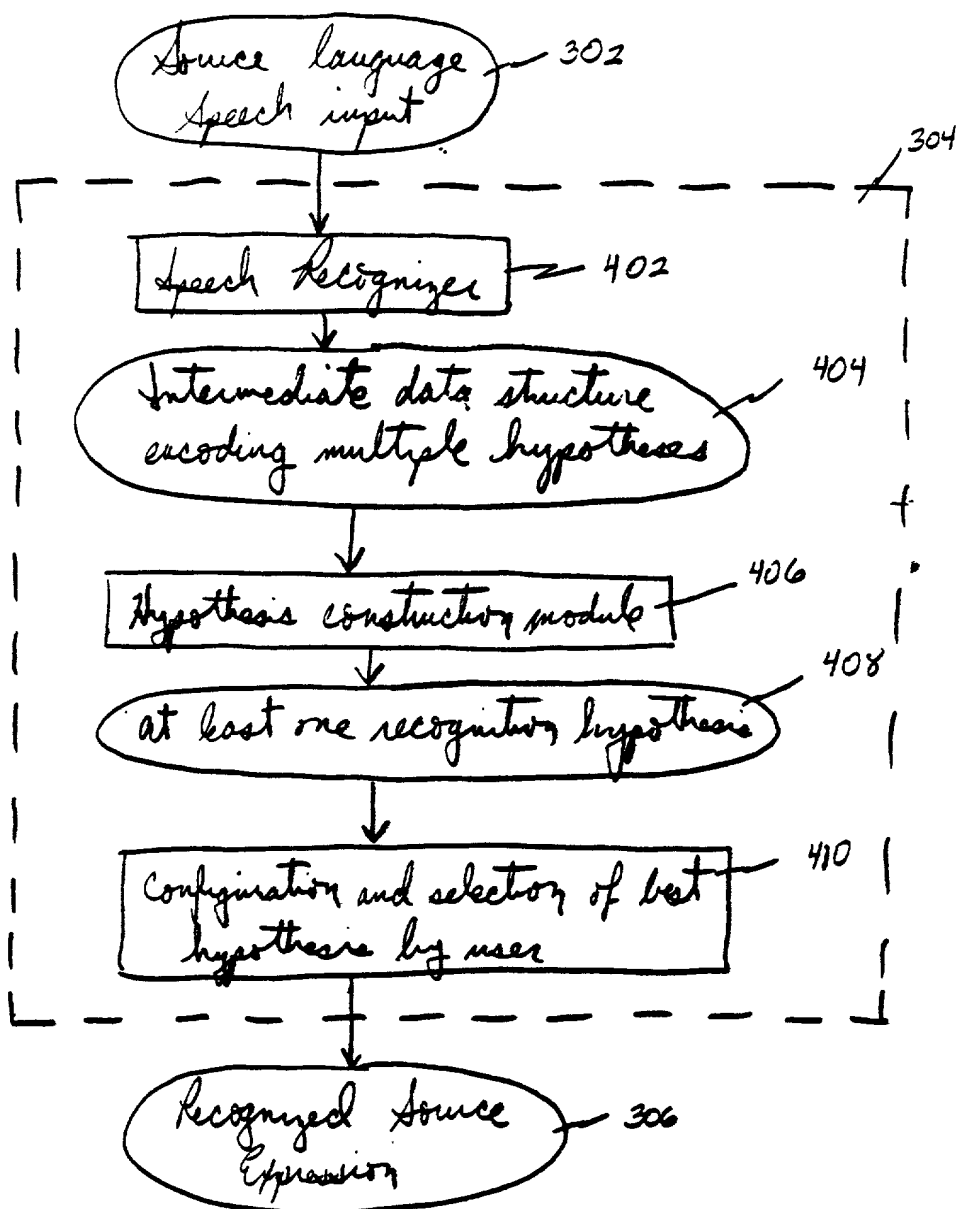 Source language
speech input
302
304
Speech Recognizer
402
Intermediate data structure
encoding multiple hypotheses
404
Hypothesis construction module
406
408
at least one recognition hypothesis
410
Configuration and selection of best
hypothesis by user
Recognized Source
Expression
306